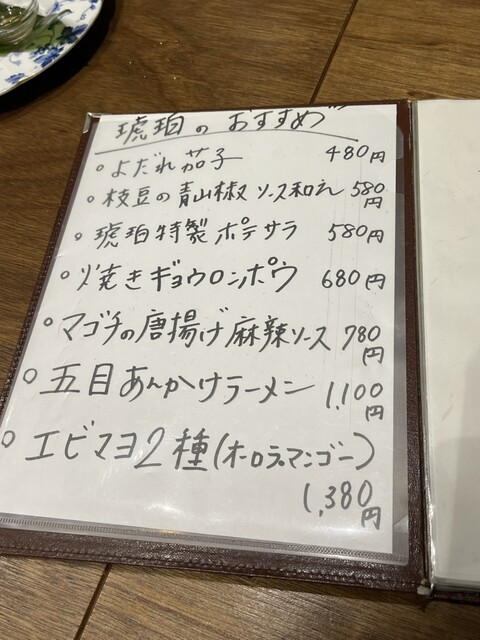 琥珀のおすすめ
○よだれ茄子 480円
○枝豆の青山椒ソース和え 580円
○琥珀特製ポテサラ 580円
○焼きギョウロンポウ 680円
○マゴチの唐揚げ麻辣ソース 780円
○五目あんかけラーメン 1,100円
○エビマヨ2種(オーロラ、マンゴー)
1,380円